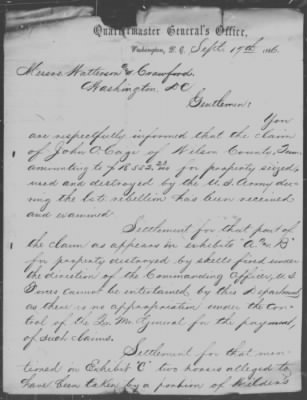 Quartermaster General's Office,
Washington, D.C. Sept. 19th 186
Messrs Watterson & Crawford,
Washington DC
Gentlemen:
You
are respectfully informed that the claim
of John O. Cage of Wilson County, Tenn.
amounting to $18.552. for property seized,
used and destroyed by the U.S. Army dur-
ing the late rebellion has been received
and examined.
Settlement for that part of
the claim as appears in exhibits "A" & "B"
for property destroyed by shells fired under
the direction of the Commanding Officer, U.S.
Forces cannot be entertained, by this Department,
as there is no appropriation under the con-
trol of the Qr. Mr. General for the payment,
of such claims.
Settlement for that men-
tioned in Exhibit "C" two horses alleged to
have been taken by a portion of Wilder's